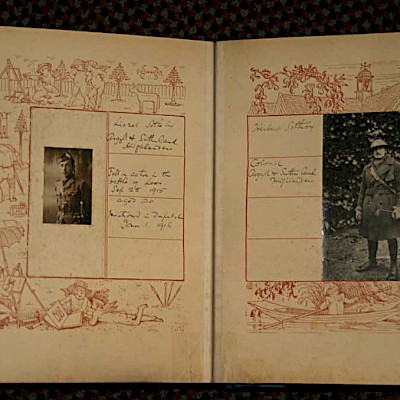 Lionel Sotheby
Argyll & Sutherland
Highlanders
Fell in action in the
battle of Loos
Sep 25 1915
aged 20
Mentioned in Dispatch
Jan 1. 1916
Herbert Sotheby
Colonel
Argyll & Sutherland
Highlanders